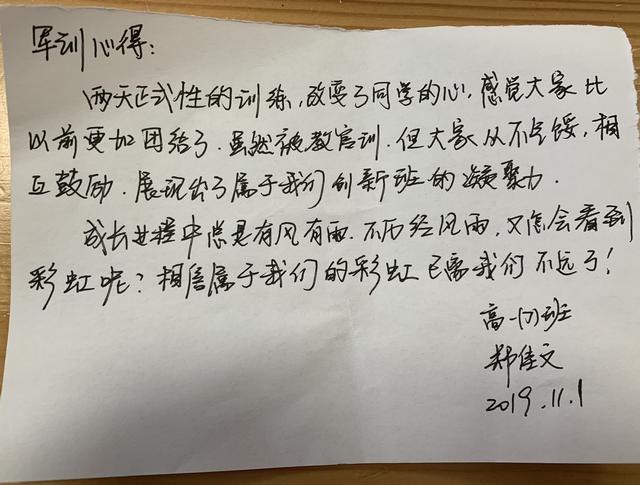 军训心得：
两天正式性的训练，改变了同学的心，感觉大家比
以前更加团结了．虽然被教官训．但大家从不气馁，相
互鼓励．展现出了属于我们创新班的凝聚力．
成长过程中总是有风有雨．不历经风雨，又怎会看到
彩虹呢？相信属于我们的彩虹已离我们不远了！
高一(7)班
郑佳文
2019.11.1